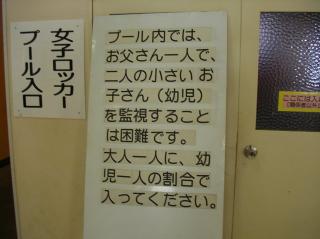 女子ロッカー
プール入口
プール内では、
お父さん一人で、
二人の小さい お
子さん（幼児）
を監視すること
は困難です。
大人一人に、幼
児一人の割合で
入ってください。
ここには入